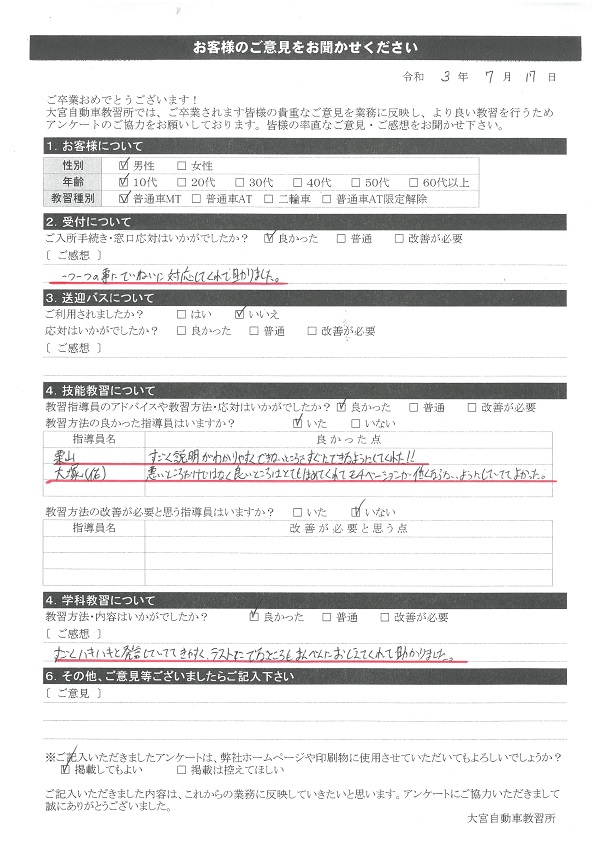 お客様のご意見をお聞かせください
令和 3 年 7 月 17 日
ご卒業おめでとうございます！
大宮自動車教習所では、ご卒業されます皆様の貴重なご意見を業務に反映し、より良い教習を行うため
アンケートのご協力をお願いしております。皆様の率直なご意見・ご感想をお聞かせ下さい。
1. お客様について
性別 ☑ 男性 □ 女性
年齢 ☑ 10代 □ 20代 □ 30代 □ 40代 □ 50代 □ 60代以上
教習種別 ☑ 普通車MT □ 普通車AT □ 二輪車 □ 普通車AT限定解除
2. 受付について
ご入所手続き・窓口応対はいかがでしたか？ ☑ 良かった □ 普通 □ 改善が必要
〔 ご感想 〕
一つ一つの事にていねいに対応してくれて助かりました。
3. 送迎バスについて
ご利用されましたか？ □ はい ☑ いいえ
応対はいかがでしたか？ □ 良かった □ 普通 □ 改善が必要
〔 ご感想 〕
4. 技能教習について
教習指導員のアドバイスや教習方法・応対はいかがでしたか？ ☑ 良かった □ 普通 □ 改善が必要
教習方法の良かった指導員はいますか？ ☑ いた □ いない
指導員名 良かった点
栗山 すごく説明がわかりやすくできないところをすぐにできるようにしてくれた!!
大塚(佑) 悪いところだけではなく良いところはとてもほめてくれてモチベーションが低くならないようにしていてよかった。
教習方法の改善が必要と思う指導員はいますか？ □ いた ☑ いない
指導員名 改善が必要と思う点
4. 学科教習について
教習方法・内容はいかがでしたか？ ☑ 良かった □ 普通 □ 改善が必要
〔 ご感想 〕
すごくハキハキと発言していてききやすく、テストにでるところもまんべんにおしえてくれて助かりました。
6. その他、ご意見等ございましたらご記入下さい
〔 ご意見 〕
※ご記入いただきましたアンケートは、弊社ホームページや印刷物に使用させていただいてもよろしいでしょうか？
☑ 掲載してもよい □ 掲載は控えてほしい
ご記入いただきました内容は、これからの業務に反映していきたいと思います。アンケートにご協力いただきまして
誠にありがとうございました。
大宮自動車教習所